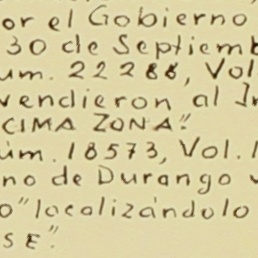 or el Gobierno
30 de Septiemb
um. 22288, Vol
vendieron al In
CIMA ZONA".
úm. 18573, Vol. 1
no de Durango
o "localizándolo
SE".